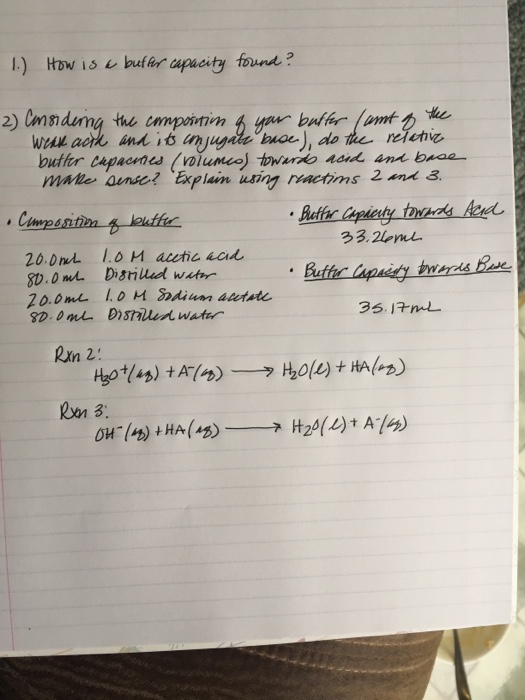 1.) How is a buffer capacity found?
2) Considering the composition of your buffer (amt of the
weak acid and its conjugate base), do the relative
buffer capacities (volumes) towards acid and base
make sense? Explain using reactions 2 and 3.
• Composition of buffer
20.0mL 1.0 M acetic acid
80.0mL Distilled water
20.0mL 1.0 M Sodium acetate
80.0mL Distilled water
• Buffer Capacity towards Acid
33.26mL
• Buffer Capacity towards Base
35.17mL
Rxn 2:
H₃O⁺(aq) + A⁻(aq) ⟶ H₂O(l) + HA(aq)
Rxn 3:
OH⁻(aq) + HA(aq) ⟶ H₂O(l) + A⁻(aq)